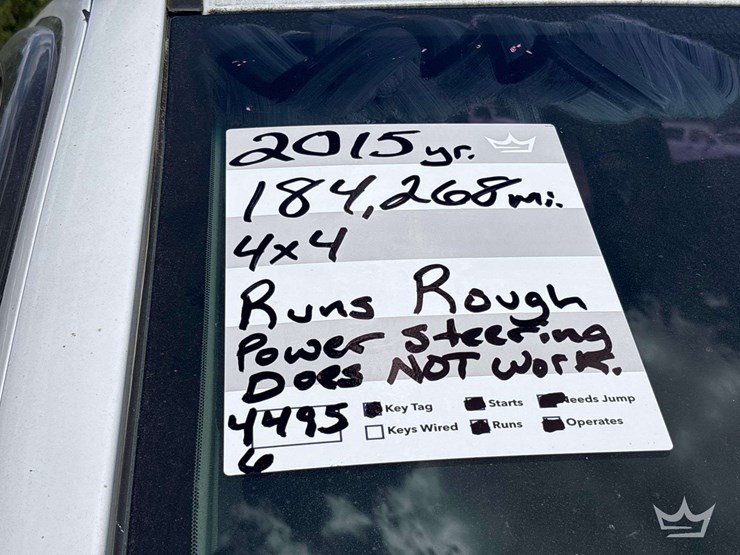 2015 yr.
184,268 mi.
4x4
Runs Rough
Power Steering
Does NOT Work.
4495
6
Key Tag Starts Needs Jump
Keys Wired Runs Operates